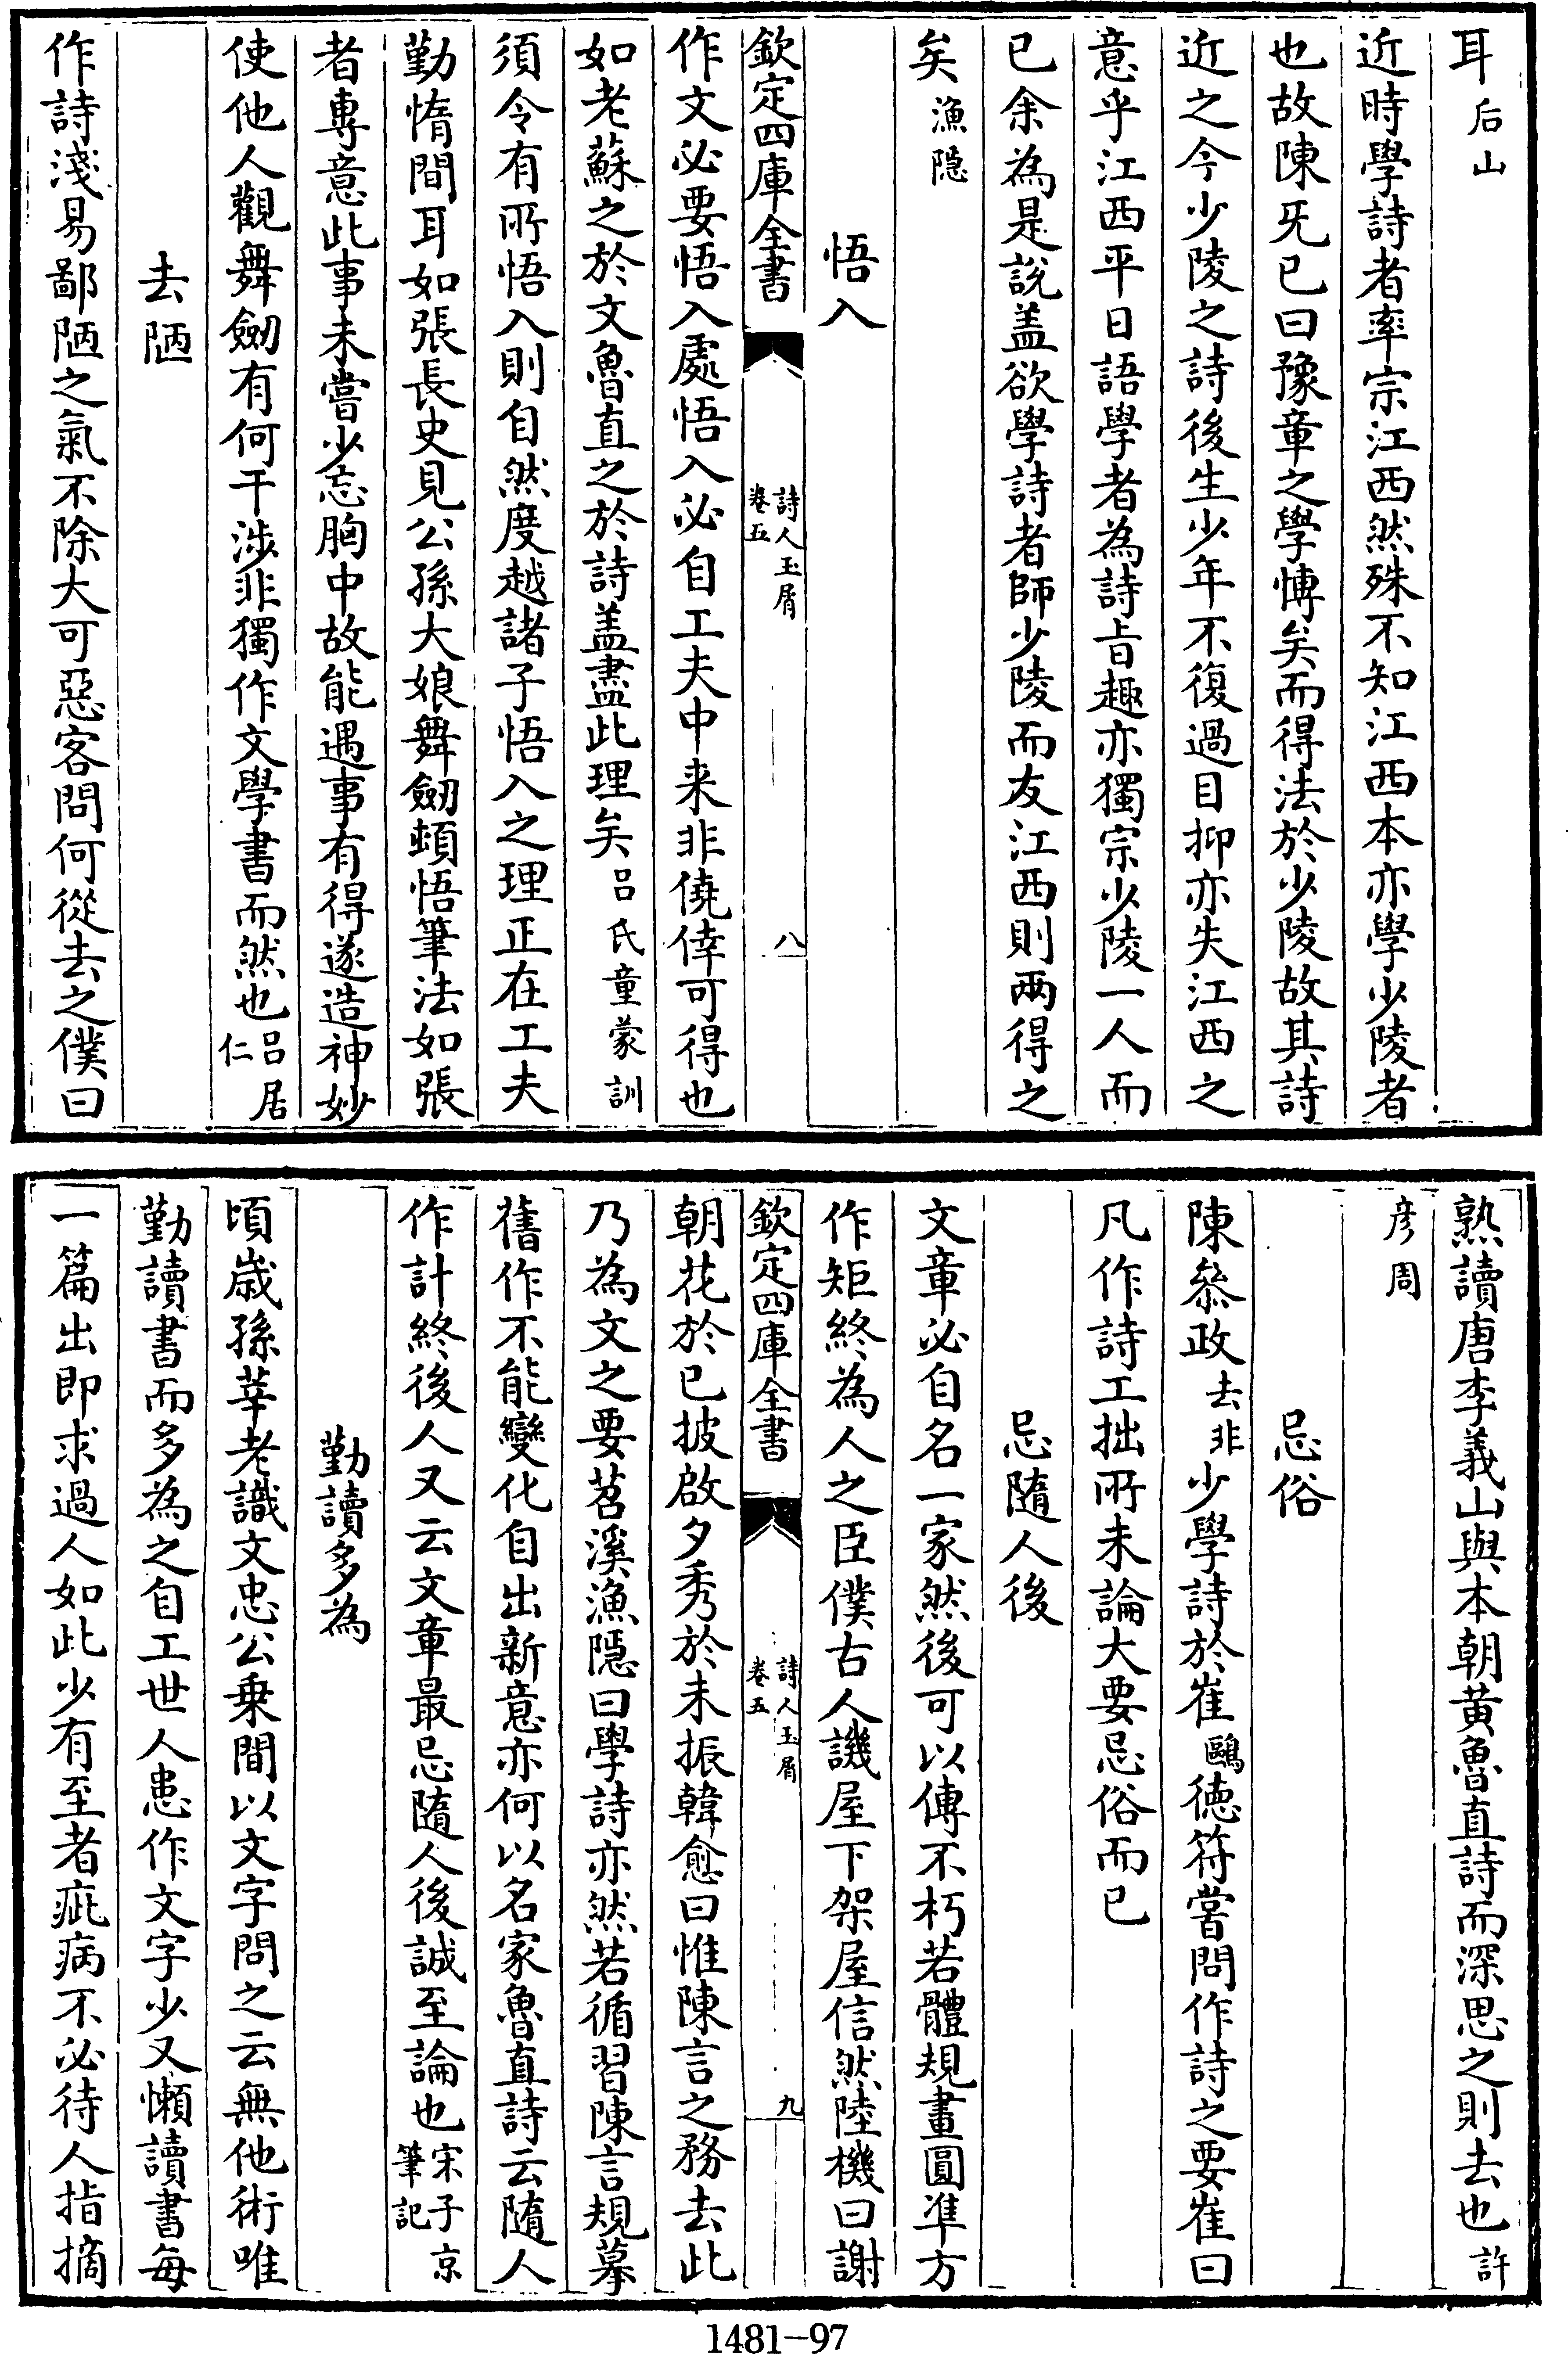 耳后山
近時學詩者率宗江西然殊不知江西本亦學少陵者
也故陳旡已曰豫章之學愽矣而得法於少陵故其詩
近之今少陵之詩後生少年不復過目抑亦失江西之
意乎江西平日語學者為詩旨趣亦獨宗少陵一人而
已余為是説盖欲學詩者師少陵而友江西則兩得之
矣漁隠
悟入
欽定四庫全書
詩人玉屑
卷五
八
作文必要悟入處悟入必自工夫中来非僥倖可得也
如老蘇之於文魯直之於詩盖盡此理矣吕氏童蒙訓
須令有所悟入則自然度越諸子悟入之理正在工夫
勤惰間耳如張長史見公孫大娘舞劒頓悟筆法如張
者專意此事未嘗少忘胸中故能遇事有得遂造神妙
使他人觀舞劒有何干涉非獨作文學書而然也吕居仁
去陋
作詩淺易鄙陋之氣不除大可惡客問何從去之僕曰
熟讀唐李義山與本朝黄魯直詩而深思之則去也許
彦周
忌俗
陳叅政去非少學詩於崔鷗德符嘗問作詩之要崔曰
凡作詩工拙所未論大要忌俗而已
忌隨人後
文章必自名一家然後可以傳不朽若體規畫圓凖方
作矩終為人之臣僕古人譏屋下架屋信然陸機曰謝
欽定四庫全書
詩人玉屑
卷五
九
朝花於已披啟夕秀於未振韓愈曰惟陳言之務去此
乃為文之要苕溪漁隠曰學詩亦然若循習陳言規摹
舊作不能變化自出新意亦何以名家魯直詩云隨人
作計終後人又云文章最忌隨人後誠至論也宋子京筆記
勤讀多為
頃歳孫莘老識文忠公乗間以文字問之云無他術唯
勤讀書而多為之自工世人患作文字少又懶讀書每
一篇出即求過人如此少有至者疵病不必待人指摘
1481-97